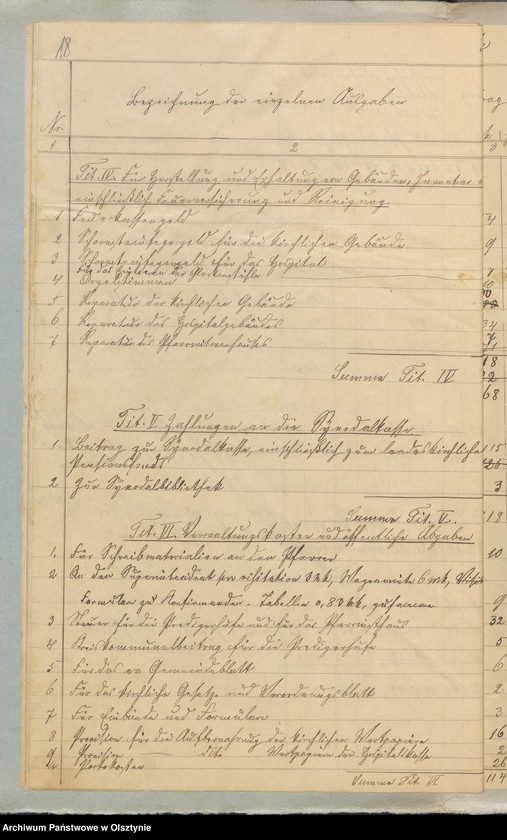 18
Bezeichnung der einzelnen Ausgaben
Nr.
1 2 3
Tit. IV. Für Herstellung und Erhaltung von Gebäuden, Inventar
einschließlich Feuerversicherung und Reinigung.
1 Feuerkassengeld 4
2 Schornsteinfegergeld für die kirchlichen Gebäude 9
3 Schornsteinfegergeld für das Hospital
Für das der Glockenstühle
4 Orgelstimmen
5 Reparatur der kirchlichen Gebäude
6 Reparatur des Hospitalgebäudes 34
7 Reparatur des Pfarrwitwenhauses
18
Summa Tit. IV
68
Tit. V Zahlungen an die Synodalkasse
1 Beitrag zur Synodalkasse, einschließlich zum landeskirchlichen 15
Pensionsfonds
2 Zur Synodalbibliothek 3
Summa Tit. V. 18
Tit. VI. Verwaltungskosten und öffentliche Abgaben
1. Für Schreibmaterialien an den Pfarrer 10
2 An den Superintendent pro visitation 3 Mk, Wagenmiete 6 Mk,
Formulare zu Konfirmanden-Tabellen 0,83 Mk, zusammen 9
3 Steuer für die Predigerhufe und für das Pfarrwitthaus 32
4 Kreiskommunalbeitrag für die Predigerhufe 5
5 Für das ev Gemeindeblatt 6
6 Für das kirchliche Gesetz- und Verordnungsblatt 2
7 Für Einbände und Formulare 3
8 Provision für die Aufbewahrung der kirchlichen Wertpapiere 16
9 Provision dito Wertpapiere der Hospitalkasse 2
Portokosten 26
Summa Tit. VI 114
Archiwum Państwowe w Olsztynie